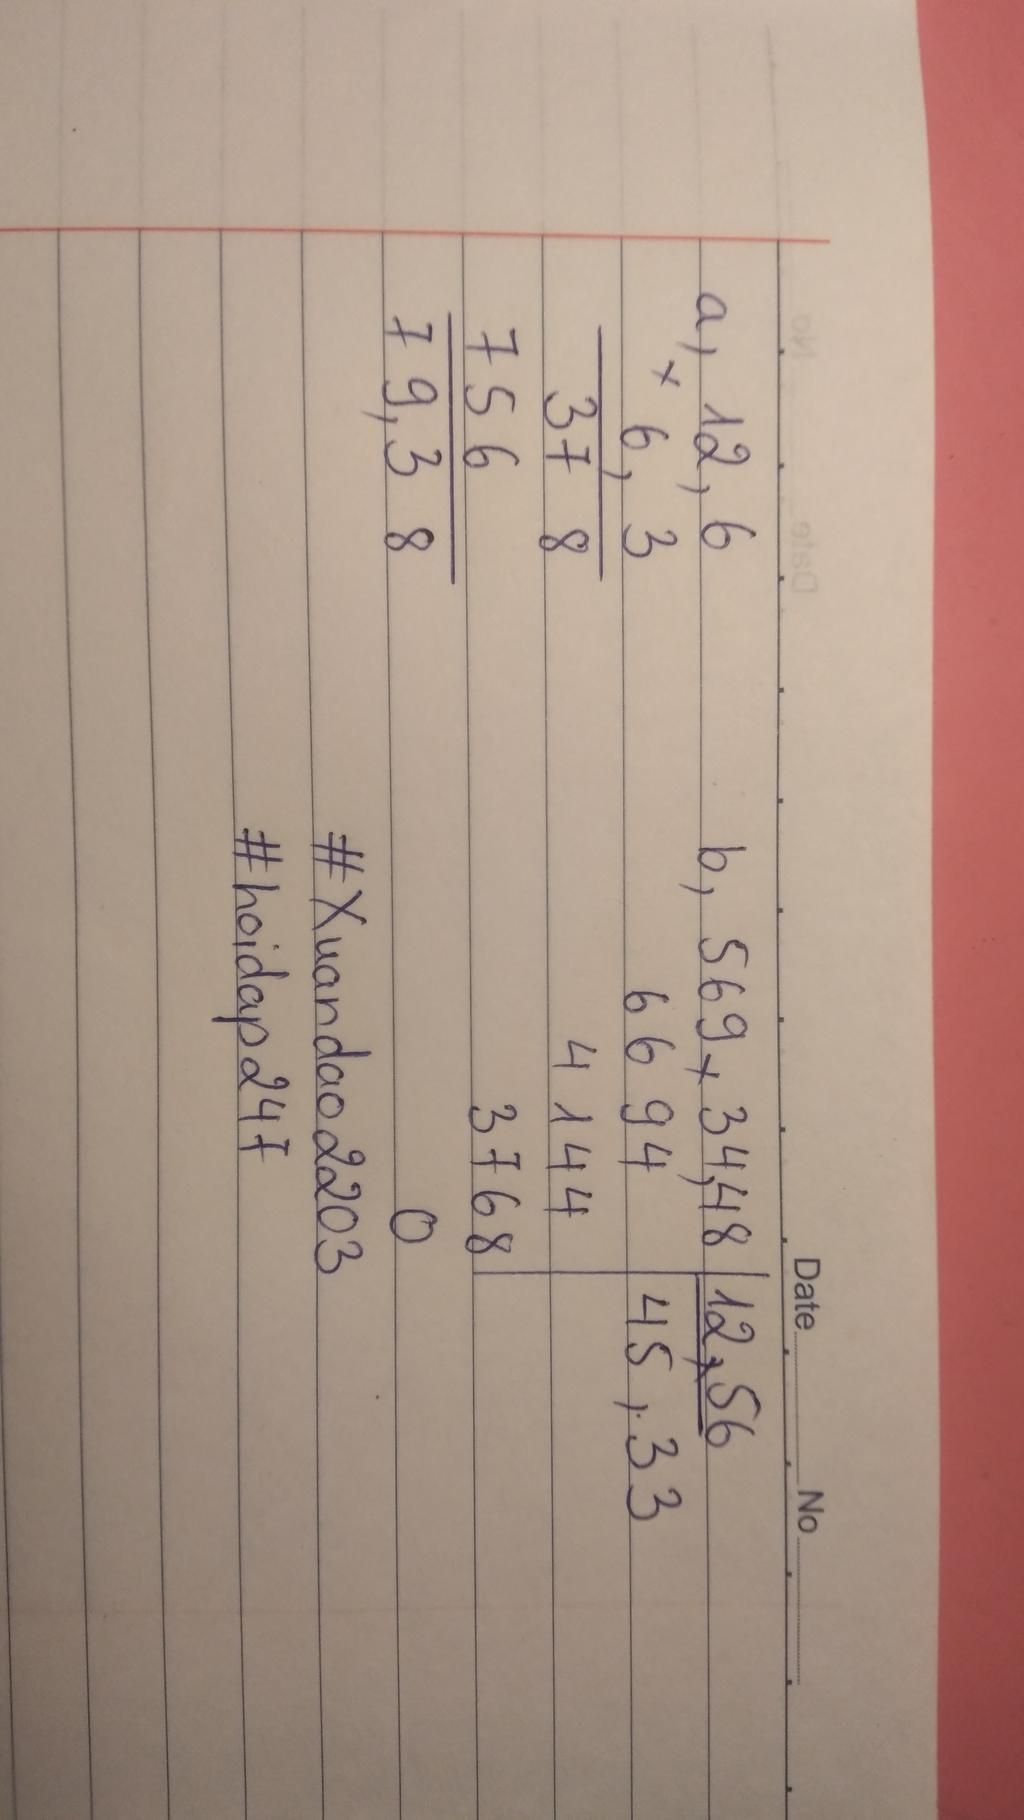 Date No
a, 12,6 b, 569,34,48 12,56
× 6,3 6694 45,33
378 4144
756 3768
79,38 0
#Xuandao2203
#hoidap247